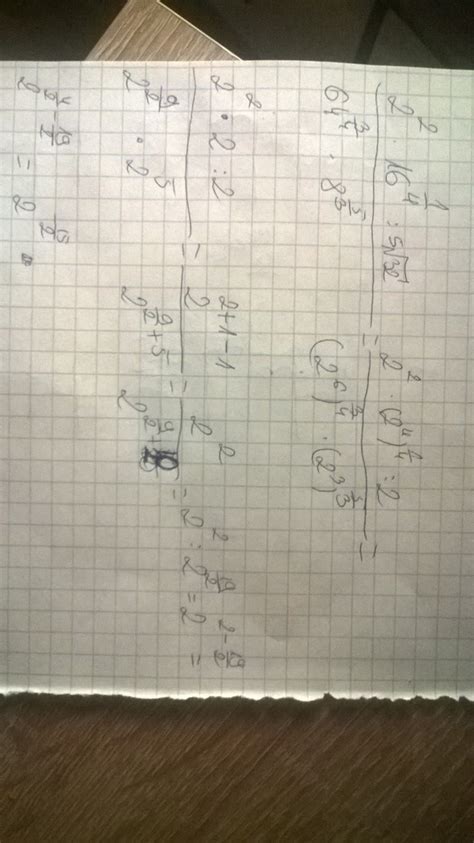 2² · 16^(1/4) : ⁵√32 / 64^(3/4) · 8^(5/3) = 2² · (2⁴)^(1/4) : 2 / (2⁶)^(3/4) · (2³)^(5/3) =
2² · 2 : 2 / 2^(9/2) · 2⁵ = 2^(2+1-1) / 2^(9/2+5) = 2² / 2^(9/2+10/2) = 2² : 2^(19/2) = 2^(2-19/2) =
2^(4/2-19/2) = 2